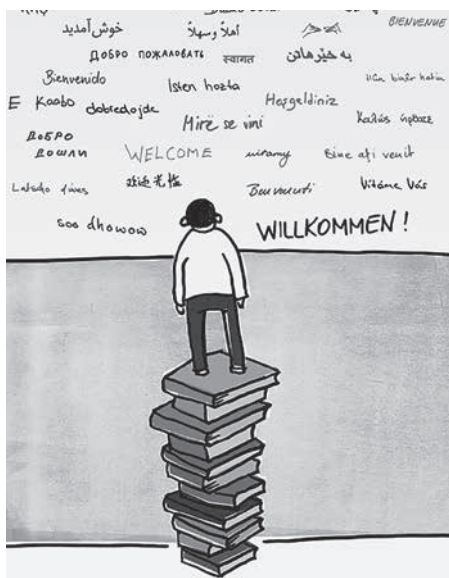 خوش آمدید أهلاً وسهلاً BIENVENUE
ДОБРО ПОЖАЛОВАТЬ स्वागत به خێرهاتن
Bienvenido Isten hozta
E Kaabo dobredojde Hoşgeldiniz
Mirë se vini Καλώς
ДОБРО
ДОШЛИ WELCOME witamy Bine ați venit
Latscho dives 欢迎光临 Benvenuti Vítáme Vás
soo dhowow WILLKOMMEN !